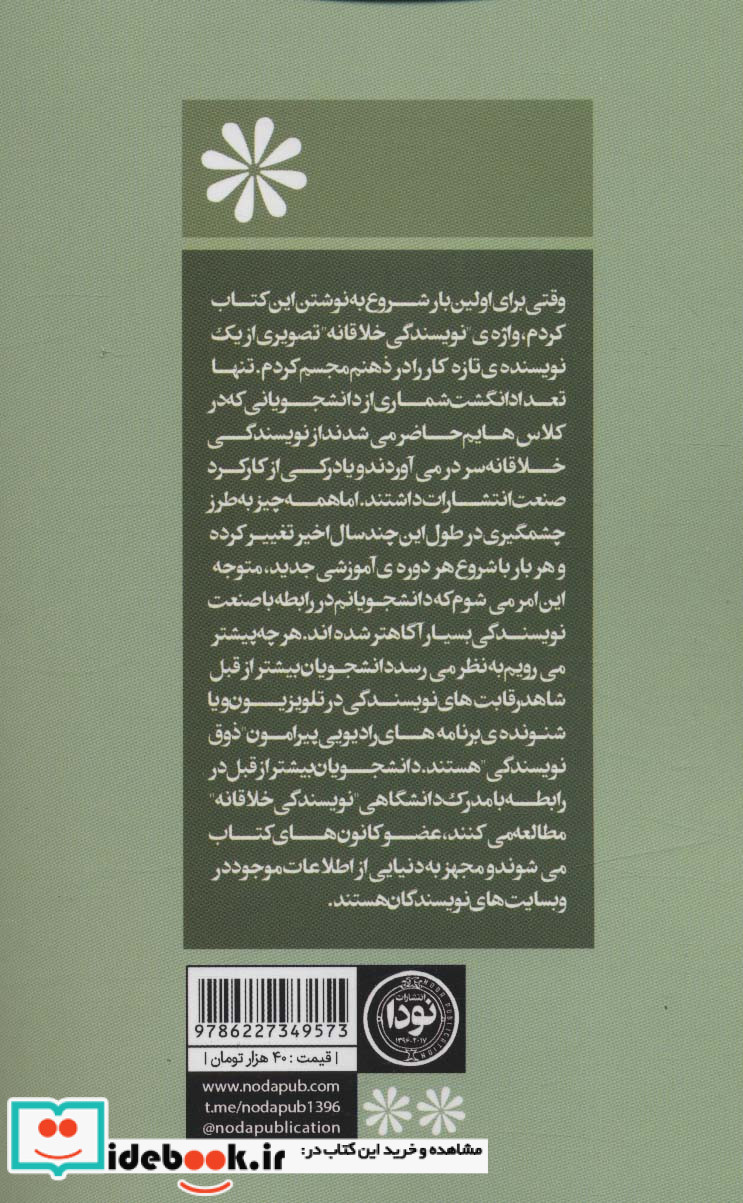 وقتی برای اولین بار شروع به نوشتن این کتاب
کردم، واژه ی "نویسندگی خلاقانه" تصویری از یک
نویسنده ی تازه کار را در ذهنم مجسم کردم. تنها
تعداد انگشت شماری از دانشجویانی که در
کلاس هایم حاضر می شدند از نویسندگی
خلاقانه سر در می آوردند و یا درکی از کارکرد
صنعت انتشارات داشتند. اما همه چیز به طرز
چشمگیری در طول این چند سال اخیر تغییر کرده
و هر بار با شروع هر دوره ی آموزشی جدید، متوجه
این امر می شوم که دانشجویانم در رابطه با صنعت
نویسندگی بسیار آگاهتر شده اند. هر چه پیشتر
می رویم به نظر می رسد دانشجویان بیشتر از قبل
شاهد رقابت های نویسندگی در تلویزیون و یا
شنونده ی برنامه های رادیویی پیرامون "ذوق
نویسندگی" هستند. دانشجویان بیشتر از قبل در
رابطه با مدرک دانشگاهی "نویسندگی خلاقانه"
مطالعه می کنند، عضو کانون های کتاب
می شوند و مجهز به دنیایی از اطلاعات موجود در
وبسایت های نویسندگان هستند.
انتشارات
نودا
NODA PUBLICATION
۱۳۹۶-۲۰۱۷
9786227349573
| قیمت : ۴۰ هزار تومان |
www.nodapub.com
t.me/nodapub1396
@nodapublication
مشاهده و خرید این کتاب در:
idebook.ir